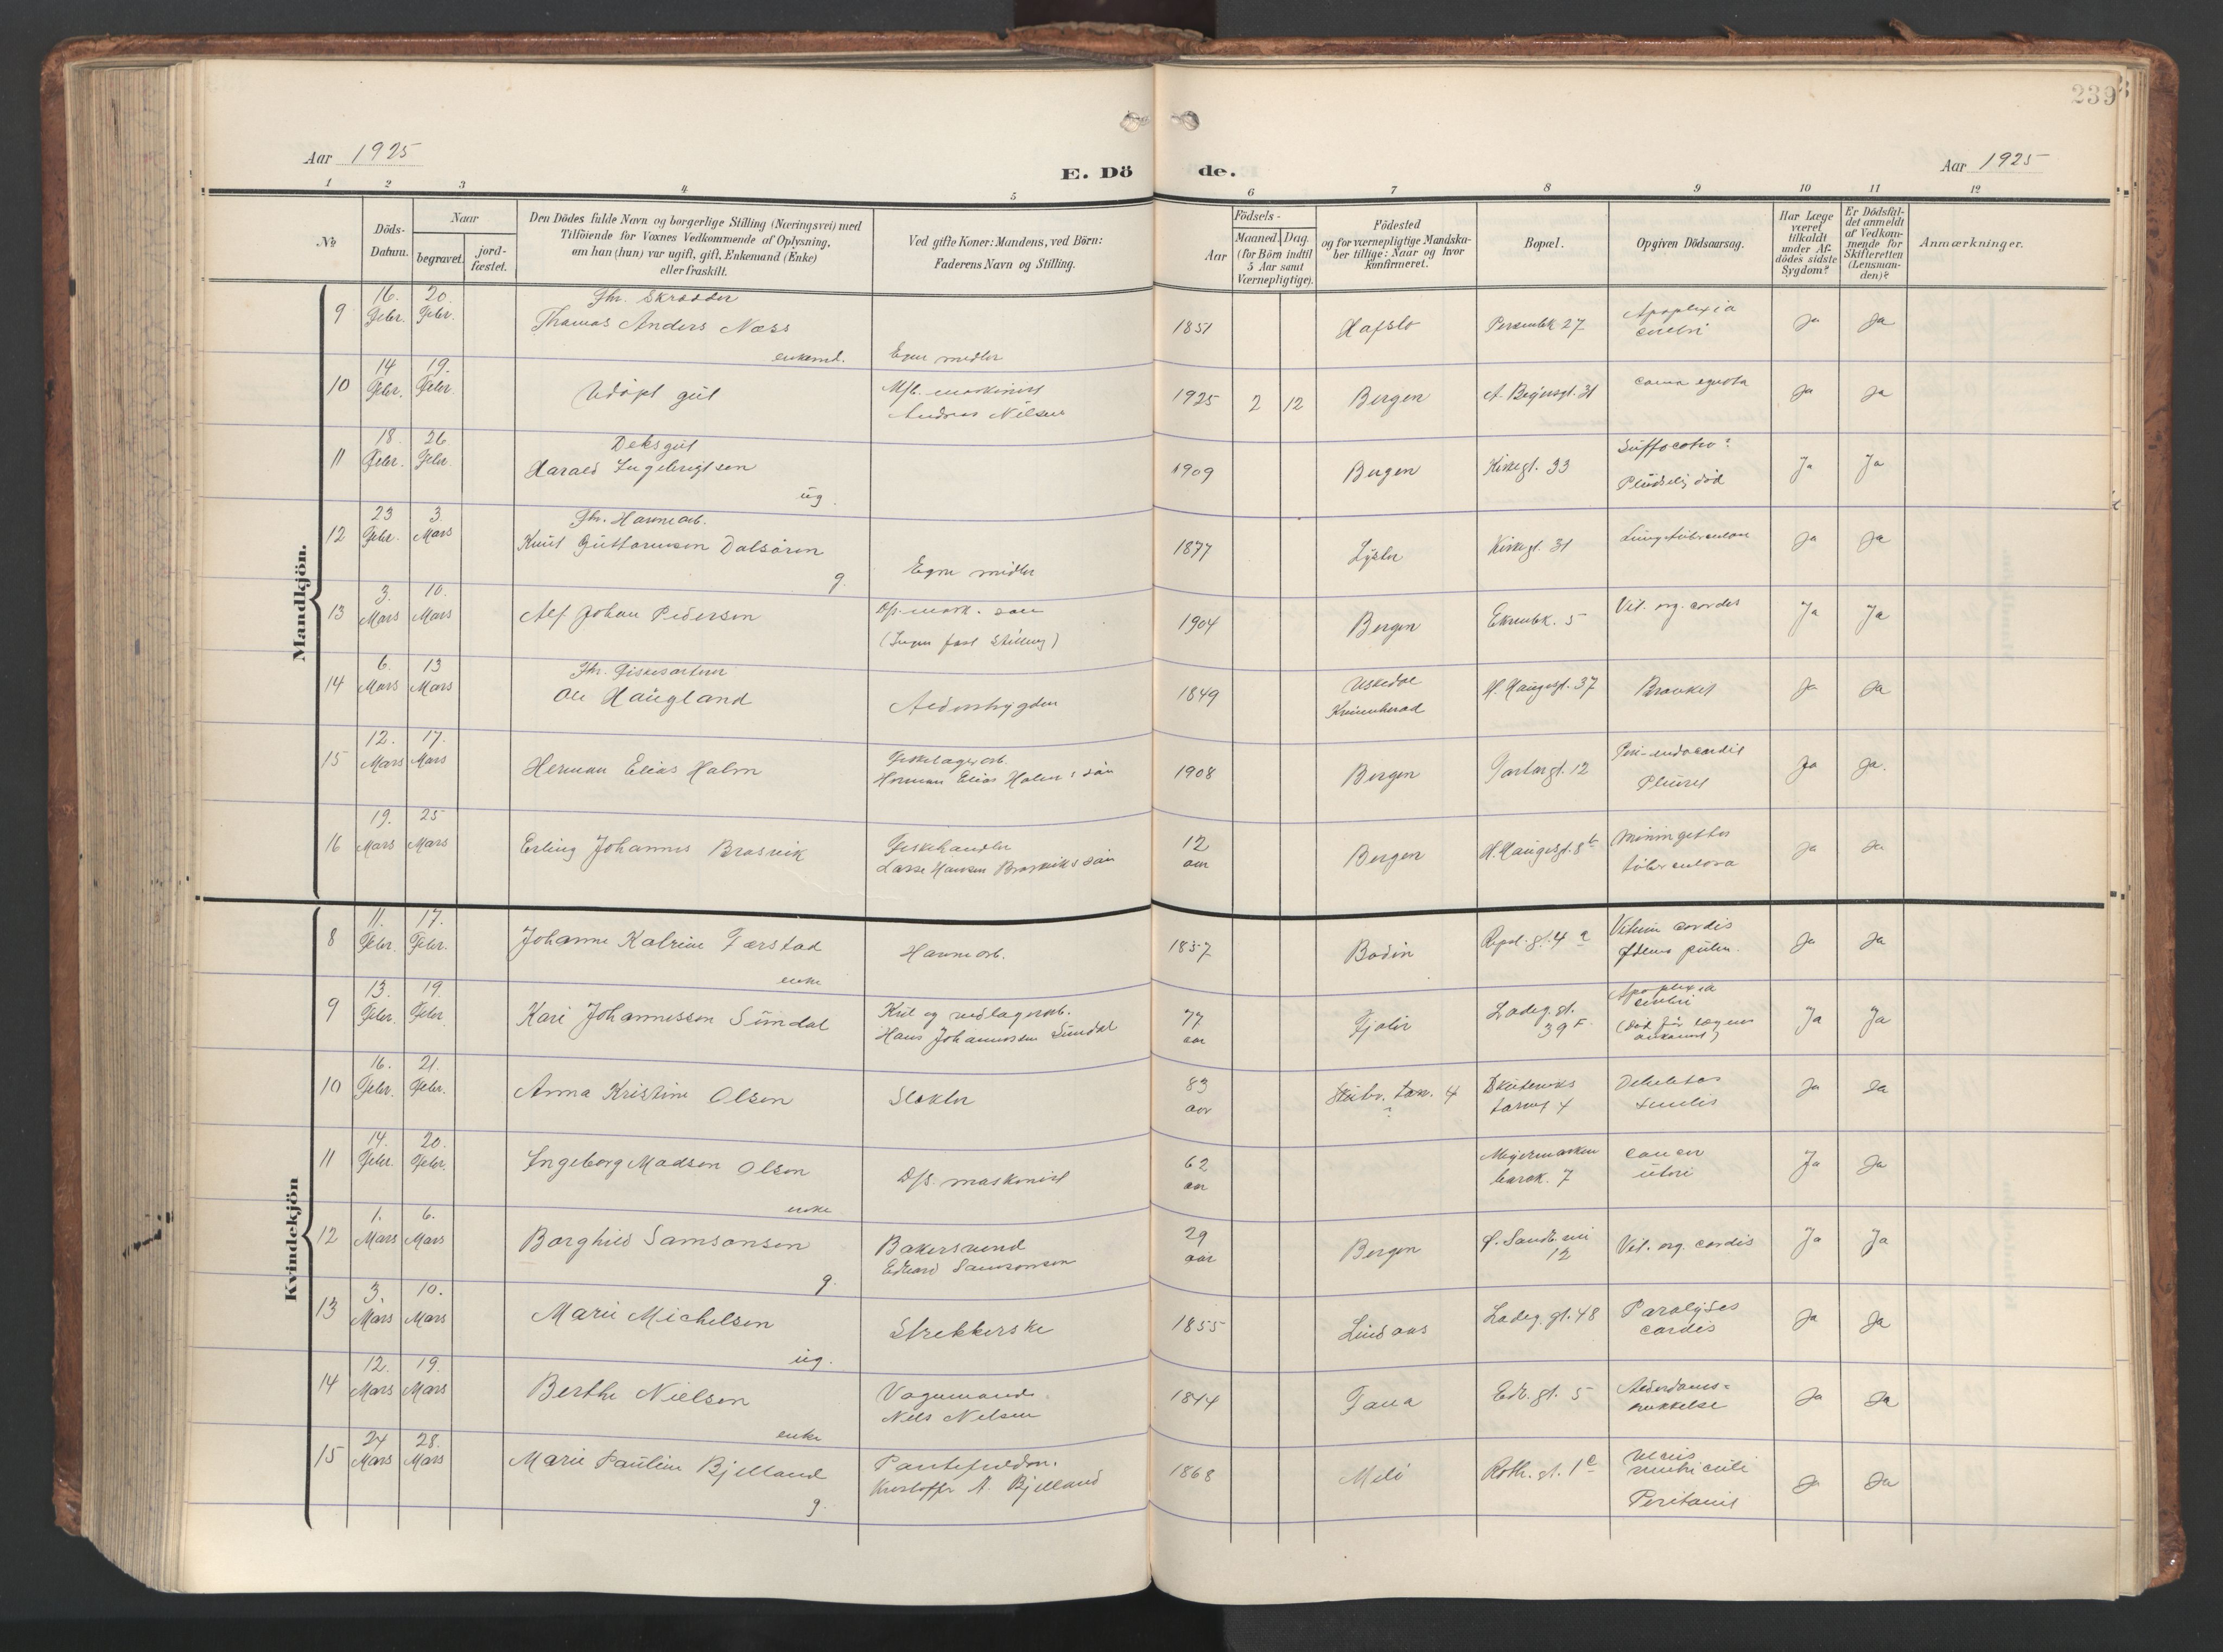 239
Aar 1925
E. Dö
de.
Aar 1925
1 2 3 4 5 6 7 8 9 10 11 12
No
Döds-
Datum.
Naar
begravet.
jord-
fæstet.
Den Dödes fulde Navn og borgerlige Stilling (Næringsvei) med
Tilföiende for Voxnes Vedkommende af Oplysning,
om han (hun) var ugift, gift, Enkemand (Enke)
eller fraskilt.
Ved gifte Koner: Mandens, ved Börn:
Faderens Navn og Stilling.
Aar
Födsels-
Maaned. Dag.
(for Börn indtil
5 Aar samt
Værnepligtige).
Födested
og for værnepligtige Mandska-
ber tillige: Naar og hvor
konfirmeret.
Bopæl.
Opgiven Dödsaarsag.
Har Læge
været
tilkaldt
under Af-
dödes sidste
Sygdom?
Er Dödsfal-
det anmeldt
af Vedkom-
mende for
Skifteretten
(Lensman-
den)?
Anmærkninger.
Mandkjön.
9 16. Febr. 20. Febr. Fhv. Skrædder
Thomas Anders Næss
enkemd. Egne midler 1851 Hafslo 27 Apoplexia
cerebri Ja Ja
10 14 Febr. 19. Febr. Udöpt gut M/b. maskinist
Andreas Nilsen 1925 2 12 Bergen 31 Ja Ja
11 18. Febr. 26 Febr. Deksgut
Harald Ingebrigtsen
ug. 1909 Bergen Kirkegt. 33 Suffocatio?
Pludselig död Ja Ja
12 23 Febr. 3. Mars Fhv. Havnearb.
Knut Guttormsen Dalsören
g. Egne midler 1877 Lyster Kirkegt. 31 Lungetuberculose Ja Ja
13 3. Mars 10. Mars Alf Johan Pedersen D/s. mask. sön
(Ingen fast stilling) 1904 Bergen Ekrenbk. 5 Vit. org. cordis Ja Ja
14 6. Mars 13 Mars Fhv.
Ole Haugland Alderstrygden 1849 Uskedal
Kvinnherad H. Haugesgt. 37 Bronkit Ja Ja
15 12. Mars 17. Mars Herman Elias Halm Fiskelagerarb.
Herman Elias Halm's sön 1908 Bergen 12 Peri-endocardit
Pleurit Ja Ja.
16 19. Mars 25 Mars Erling Johannes Brosvik Fiskehandler
Lasse Hansen Brosviks sön 12
aar Bergen H. Haugesgt. 8b Meningitis
tuberculosa Ja Ja
Kvindekjön
8 11. Febr. 17. Febr. Johanne Katrine Farstad
enke Havnearb. 1857 Bodin Repsl. gt. 4 a Vitium cordis
Ødema pulm. Ja Ja
9 13. Febr. 19. Febr. Kari Johannessen Sundal Kul og vedlagerarb.
Hans Johannessen Sundal 77
aar Fjaler Ladeg. gt.
39 F. Apoplexia
cerebri
(död för lægens
ankomst) Ja Ja
10 16. Febr. 21. Febr. Anna Kristine Olsen Slakter 83
aar 4
? Skuteviks
torvet 4 Debilitas
senilis Ja Ja
11 14. Febr. 20. Febr. Ingeborg Madsen Olsen
enke D/s. maskinist 62
aar Meyermarken
barak. 7 Cancer
uteri Ja Ja
12 1. Mars 6. Mars Borghild Samsonsen
g. Bakersvend
Edvard Samsonsen 29
aar Bergen 12 Vit. org. cordis Ja Ja
13 3. Mars 10. Mars Marie Michelsen
ug. Strekkerske 1855 Lindaas Ladeg. gt. 48 Paralyses
cordis Ja Ja
14 12. Mars 19. Mars Berthe Nielsen
enke Vognmand
Nels Nelsen 1844 Fana Edv. gt. 5 Alderdoms-
svekkelse Ja Ja
15 24 Mars 28. Mars Marie Pauline Bjelland
g.
Kristoffer A. Bjelland 1868 Roth. gt. 1 c Ulcus
ventriculi
Peritonit Ja Ja